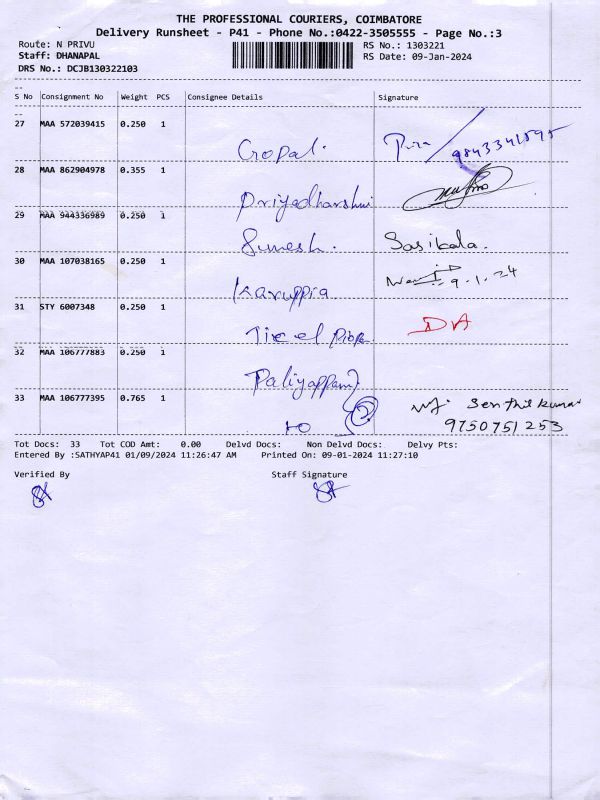 THE PROFESSIONAL COURIERS, COIMBATORE
Delivery Runsheet - P41 - Phone No.:0422-3505555 - Page No.:3
Route: N PRIVU RS No.: 1303221
Staff: DHANAPAL RS Date: 09-Jan-2024
DRS No.: DCJB130322103
S No Consignment No Weight PCS Consignee Details Signature
27 MAA 572039415 0.250 1 Gopal. 9843341595
28 MAA 862904978 0.355 1 Priyadharshni
29 MAA 944336989 0.250 1 Sumesh. Sasikala.
30 MAA 107038165 0.250 1 Karuppia 9.1.24
31 STY 6007348 0.250 1 DA
32 MAA 106777883 0.250 1
33 MAA 106777395 0.765 1 Senthilkumar
9750751253
Tot Docs: 33 Tot COD Amt: 0.00 Delvd Docs: Non Delvd Docs: Delvy Pts:
Entered By :SATHYAP41 01/09/2024 11:26:47 AM Printed On: 09-01-2024 11:27:10
Verified By Staff Signature